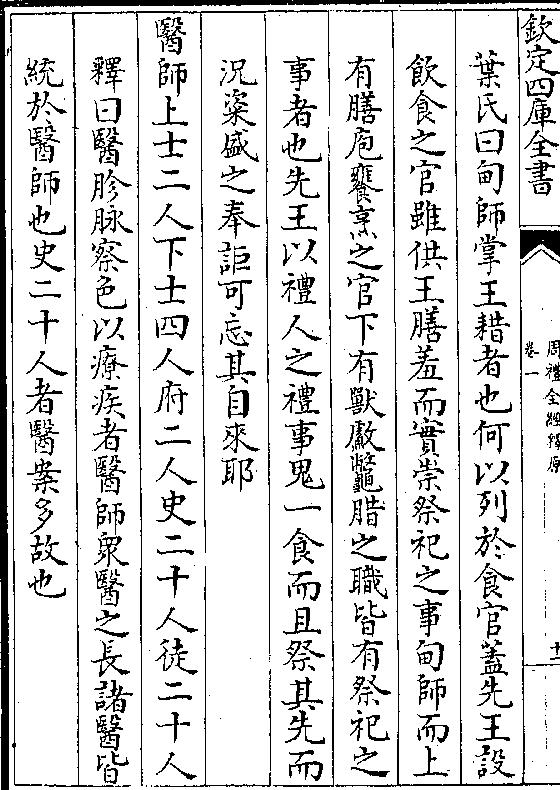 欽定四庫全書
周禮全經釋原
卷一
葉氏曰甸師掌王耤者也何以列於食官蓋先王設
飲食之官雖供王膳羞而實崇祭祀之事甸師而上
有膳庖饔烹之官下有獸䱷鼈腊之職皆有祭祀之
事者也先王以禮人之禮事鬼一食而且祭其先而
況粢盛之奉詎可忘其自來耶
醫師上士二人下士四人府二人史二十人徒二十人
釋曰醫胗脉察色以療疾者醫師衆醫之長諸醫皆
統於醫師也史二十人者醫案多故也